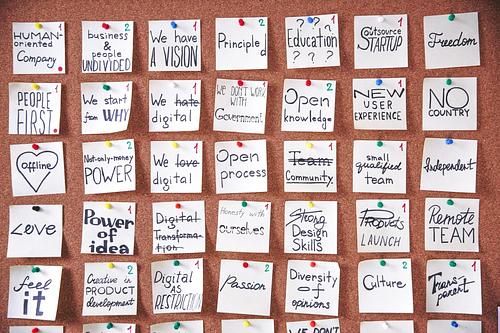 HUMAN-
oriented
Company.
business
&
people
UNDIVIDED
2
We have
A VISION
1
Principle
2
? ? ?
Education
? ? ?
1
Outsource
STARTUP
1
Freedom
PEOPLE
FIRST
1
We start
from WHY
2
We hate
digital
1
We DON'T WORK
WITH
Government
1
Open
knowledge
2
NEW
USER
EXPERIENCE
1
NO
COUNTRY
Offline
Not-only-money
POWER
2
We love
digital
1
Open
process
1
Team
Community.
1
small
qualified
team
1
Independent
Love
Power of
idea
2
Digital
Transforma-
tion
1
Honesty with
ourselves
1
Strong
Design
Skills
Products
LAUNCH
1
Remote
TEAM
feel
it
Creative in
PRODUCT
development
2
Digital
AS
RESTRICTION
1
Passion
2
Diversity
of
opinions
1
Culture
2
Trans
parent
1
WE DON'T